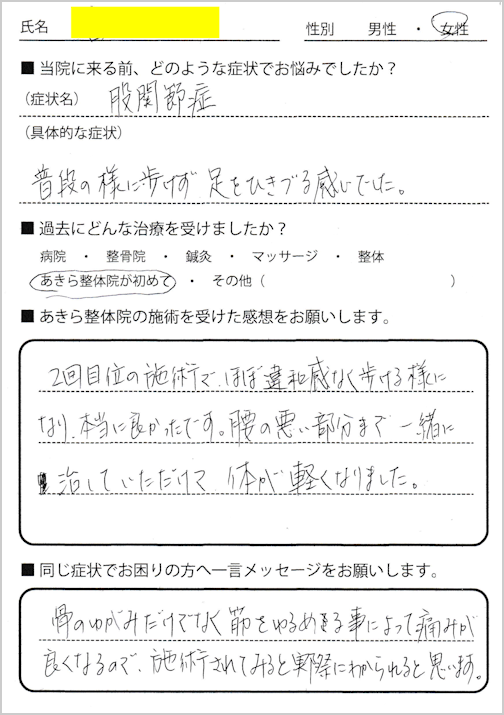 氏名
性別 男性 ・ 女性
■ 当院に来る前、どのような症状でお悩みでしたか？
（症状名） 股関節症
（具体的な症状）
普段の様に歩けず 足をひきづる感じでした。
■ 過去にどんな治療を受けましたか？
病院 ・ 整骨院 ・ 鍼灸 ・ マッサージ ・ 整体
あきら整体院が初めて ・ その他（ ）
■ あきら整体院の施術を受けた感想をお願いします。
2回目位の施術で、ほぼ違和感なく歩ける様に
なり、本当に良かったです。腰の悪い部分まで一緒に
治していただけて 体が軽くなりました。
■ 同じ症状でお困りの方へ一言メッセージをお願いします。
骨のゆがみだけでなく筋をゆるめる事によって痛みが
良くなるので、施術されてみると実際にわかられると思います。